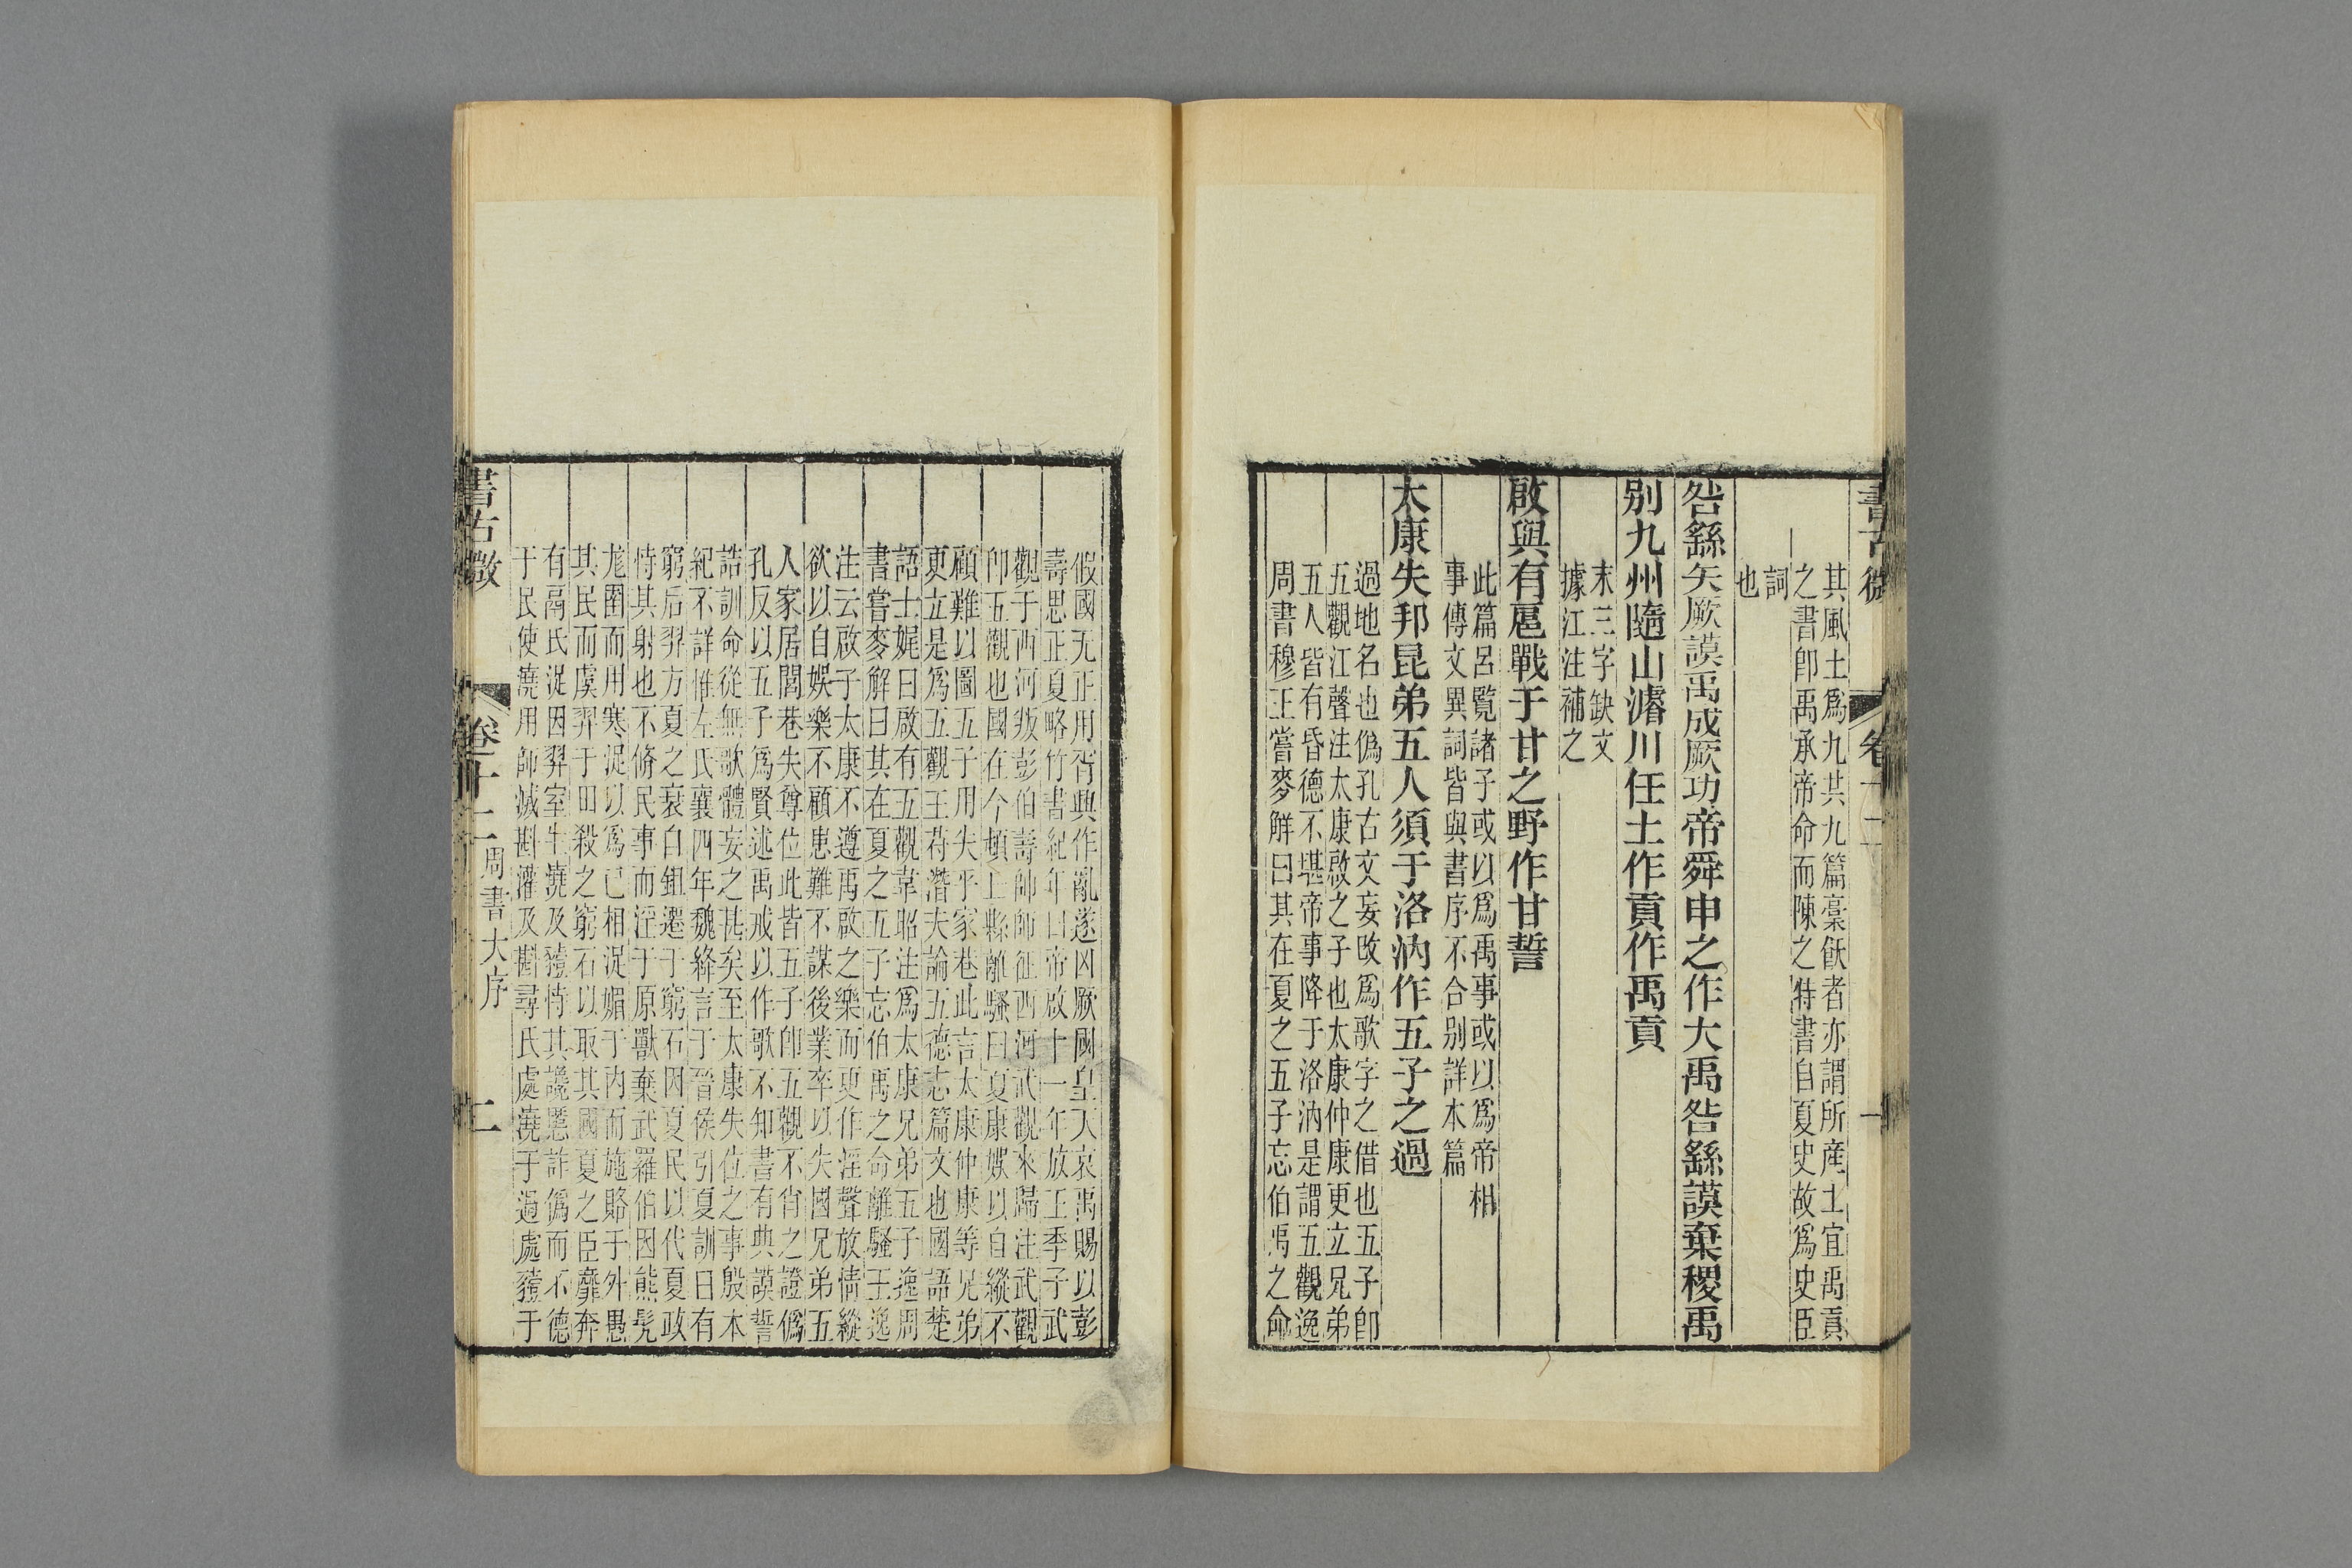 書古微 卷十二 一
其風土爲九共九篇稾飫者亦謂所產土宜禹貢
之書卽禹承帝命而陳之特書自夏史故爲史臣
詞
也
咎繇矢厥謨禹成厥功帝舜申之作大禹咎繇謨棄稷禹
別九州隨山濬川任土作貢作禹貢
末三字缺文
據江注補之
啟與有扈戰于甘之野作甘誓
此篇呂覽諸子或以爲禹事或以爲帝相
事傳文異詞皆與書序不合別詳本篇
太康失邦昆弟五人須于洛汭作五子之過
過地名也僞孔古文妄改爲歌字之借也五子卽
五觀江聲注太康啟之子也太康仲康更立兄弟
五人皆有昏德不堪帝事降于洛汭是謂五觀逸
周書穆王嘗麥解曰其在夏之五子忘伯禹之命
假國无正用胥興作亂遂凶厥國皇天哀禹賜以彭
壽思正夏略竹書紀年曰帝啟十一年放王季子武
觀于西河叛彭伯壽帥師征西河武觀來歸注武觀
卽五觀也國在今頓丘縣離騷曰夏康娛以自縱不
顧難以圖五子用失乎家巷此言太康仲康等兄弟
更立是爲五觀王符潛夫論五德志篇文也國語楚
語士娓曰啟有五觀韋昭注爲太康兄弟五子逸周
書嘗麥解曰其在夏之五子忘伯禹之命離騷王逸
注云啟子太康不遵禹啟之樂而更作淫聲放情縱
欲以自娛樂不顧患難不謀後業卒以失國兄弟五
人家居閭巷失尊位此皆五子卽五觀不肖之證僞
孔反以五子爲賢述禹戒以作歌不知書有典謨誓
誥訓命從無歌體妄之甚矣至太康失位之事殷本
紀不詳惟左氏襄四年魏絳言于晉侯引夏訓曰有
窮后羿方夏之衰自鉏遷于窮石因夏民以代夏政
恃其射也不脩民事而淫于原獸棄武羅伯因熊髡
尨圉而用寒浞以爲己相浞媚于內而施賂于外愚
其民而虞羿于田殺之窮石以取其國夏之臣靡奔
有鬲氏浞因羿室生澆及豷恃其讒慝詐僞而不德
于民使澆用師滅斟灌及斟尋氏處澆于過處豷于
書古微 卷十二 周書大序 二